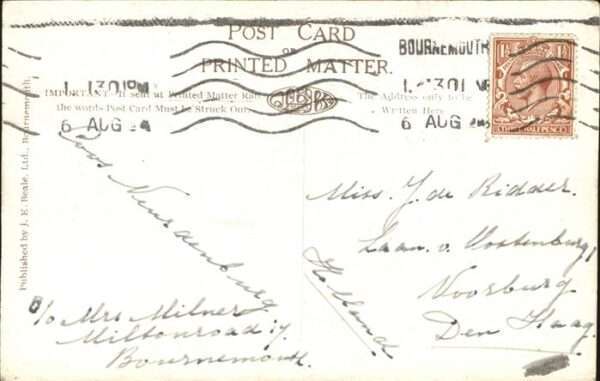 POST CARD
OR
PRINTED MATTER.
IMPORTANT: If sent at Printed Matter Rate
the words Post Card Must be Struck Out.
The Address only to be
Written Here
BOURNEMOUTH
1 30 PM
6 AUG 24
1 30 PM
6 AUG 24
THREE HALF PENCE
Published by J. E. Beale, Ltd., Bournemouth.
Neurdenburg
c/o Mrs Milner
Miltonroad 17
Bournemouth.
Miss. J. de Ridder.
Laan. v. Oostenburg,
Voorburg
Den Haag.
Holland